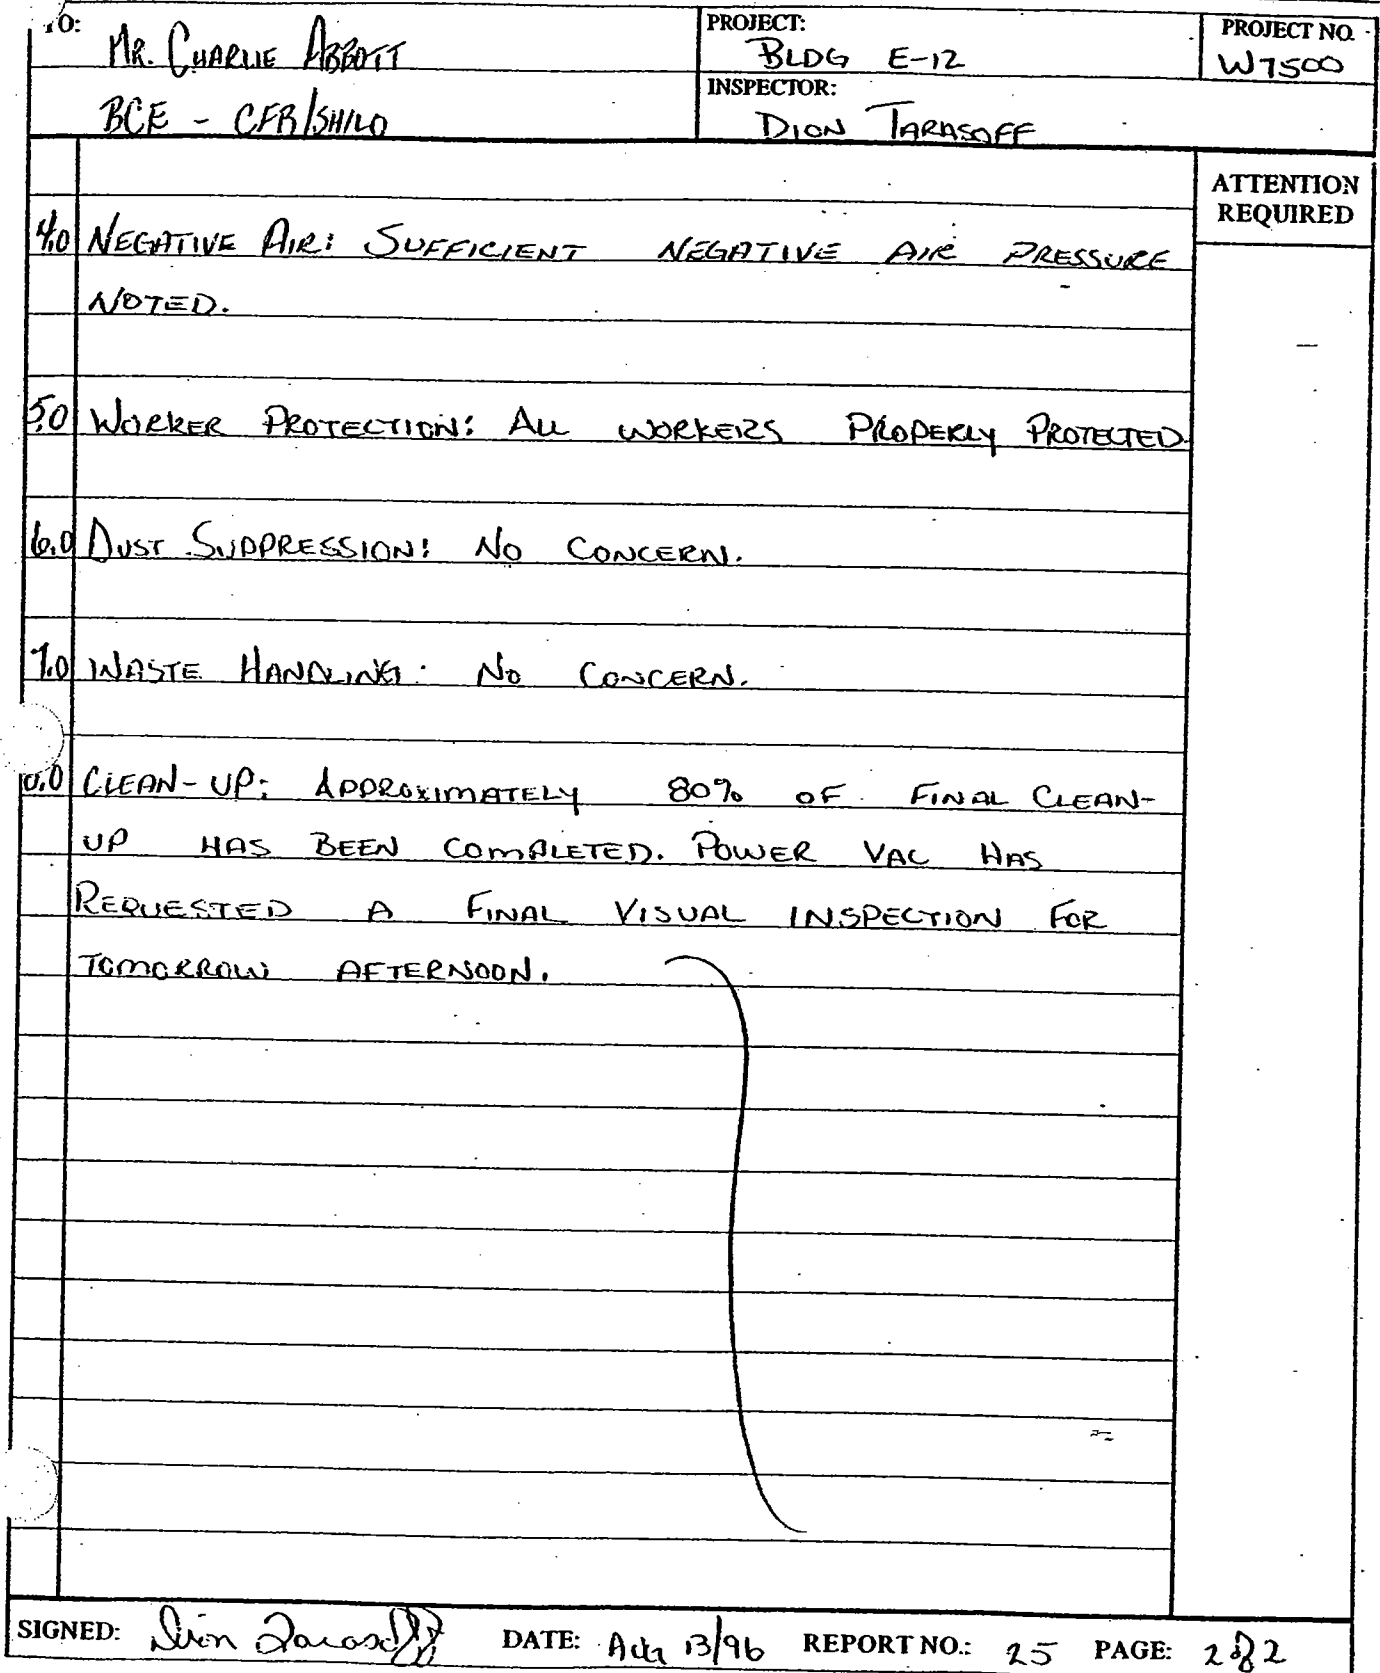 TO: MR. CHARLIE ABBOTT
BCE - CFB/SHILO
PROJECT:
BLDG E-12
INSPECTOR:
DION TARASOFF
PROJECT NO.
W7500
ATTENTION
REQUIRED
4.0 NEGATIVE AIR: SUFFICIENT NEGATIVE AIR PRESSURE
NOTED.
5.0 WORKER PROTECTION: ALL WORKERS PROPERLY PROTECTED.
6.0 DUST SUPPRESSION: NO CONCERN.
7.0 WASTE HANDLING: NO CONCERN.
CLEAN-UP: APPROXIMATELY 80% OF FINAL CLEAN-
UP HAS BEEN COMPLETED. POWER VAC HAS
REQUESTED A FINAL VISUAL INSPECTION FOR
TOMORROW AFTERNOON.
SIGNED: Dion Tarasoff DATE: Aug 13/96 REPORT NO.: 25 PAGE: 2 of 2